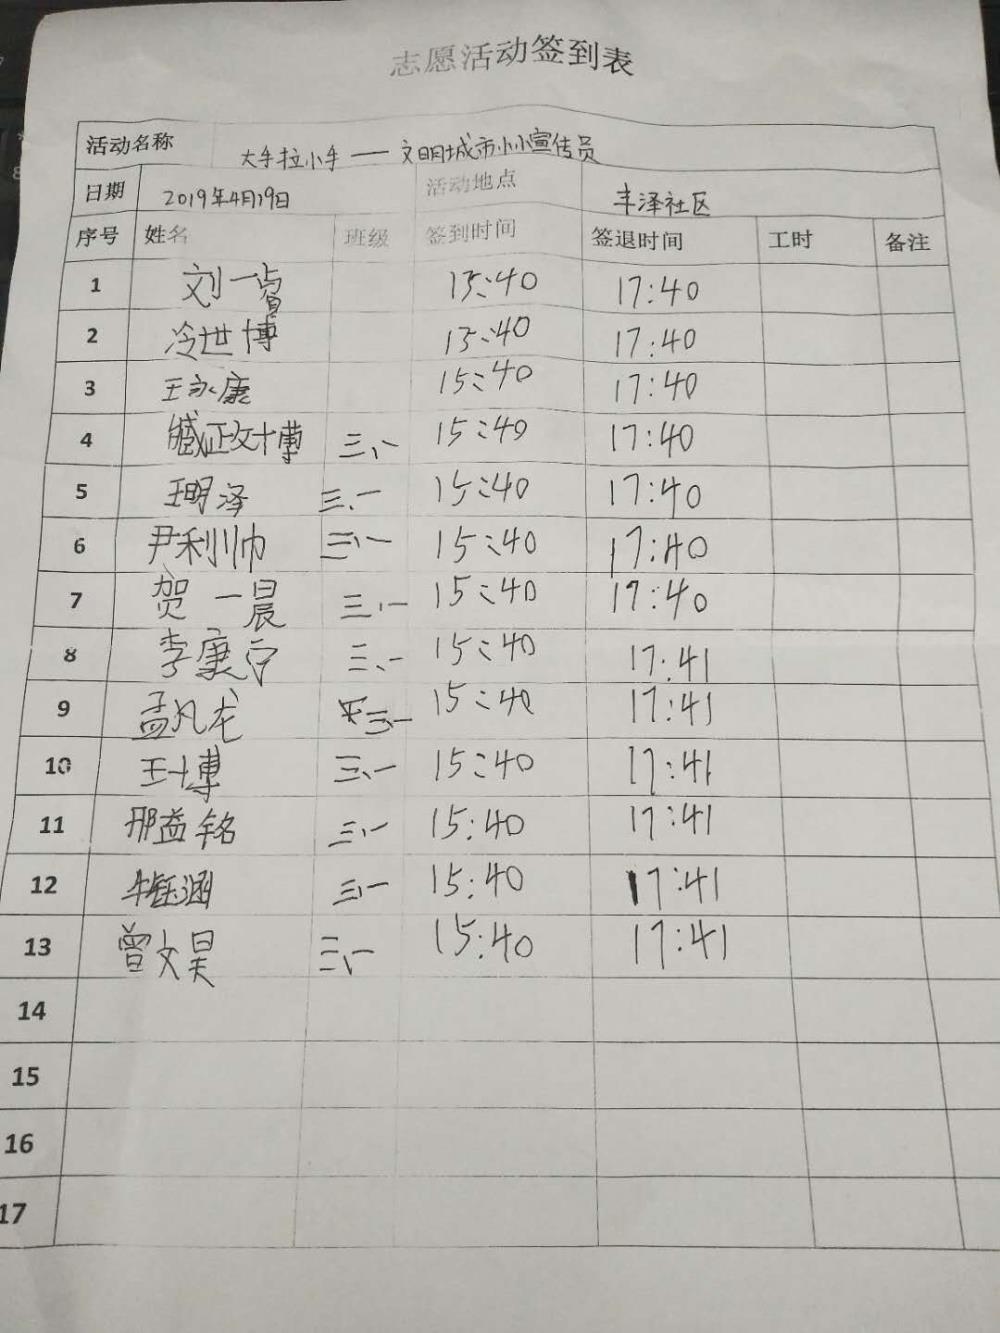 志愿活动签到表
活动名称 大手拉小手——文明城市小小宣传员
日期 2019年4月19日 活动地点 丰泽社区
序号 姓名 班级 签到时间 签退时间 工时 备注
1 刘一 15:40 17:40
2 冷世博 15:40 17:40
3 王永康 15:40 17:40
4 臧政博 三、一 15:40 17:40
5 王明泽 三、一 15:40 17:40
6 尹利帅 三、一 15:40 17:40
7 贺一晨 三、一 15:40 17:40
8 李康宁 三、一 15:40 17:41
9 孟凡龙 三、一 15:40 17:41
10 王博 三、一 15:40 17:41
11 邢益铭 三、一 15:40 17:41
12 牛钰涵 三、一 15:40 17:41
13 曾文昊 三、一 15:40 17:41
14
15
16
17